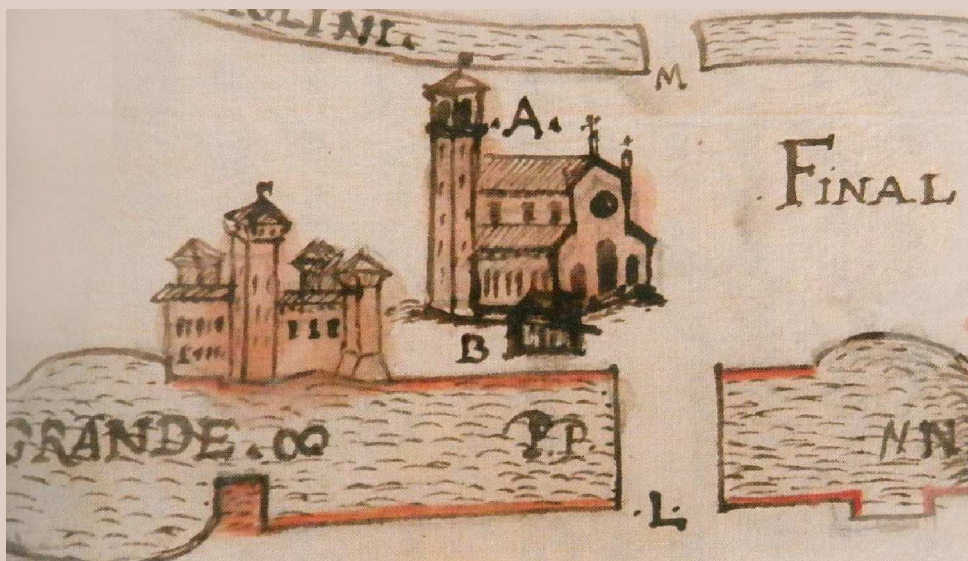 OLINI.
M
.A.
.FINAL
B
GRANDE.OO
P.P
NN
.L.